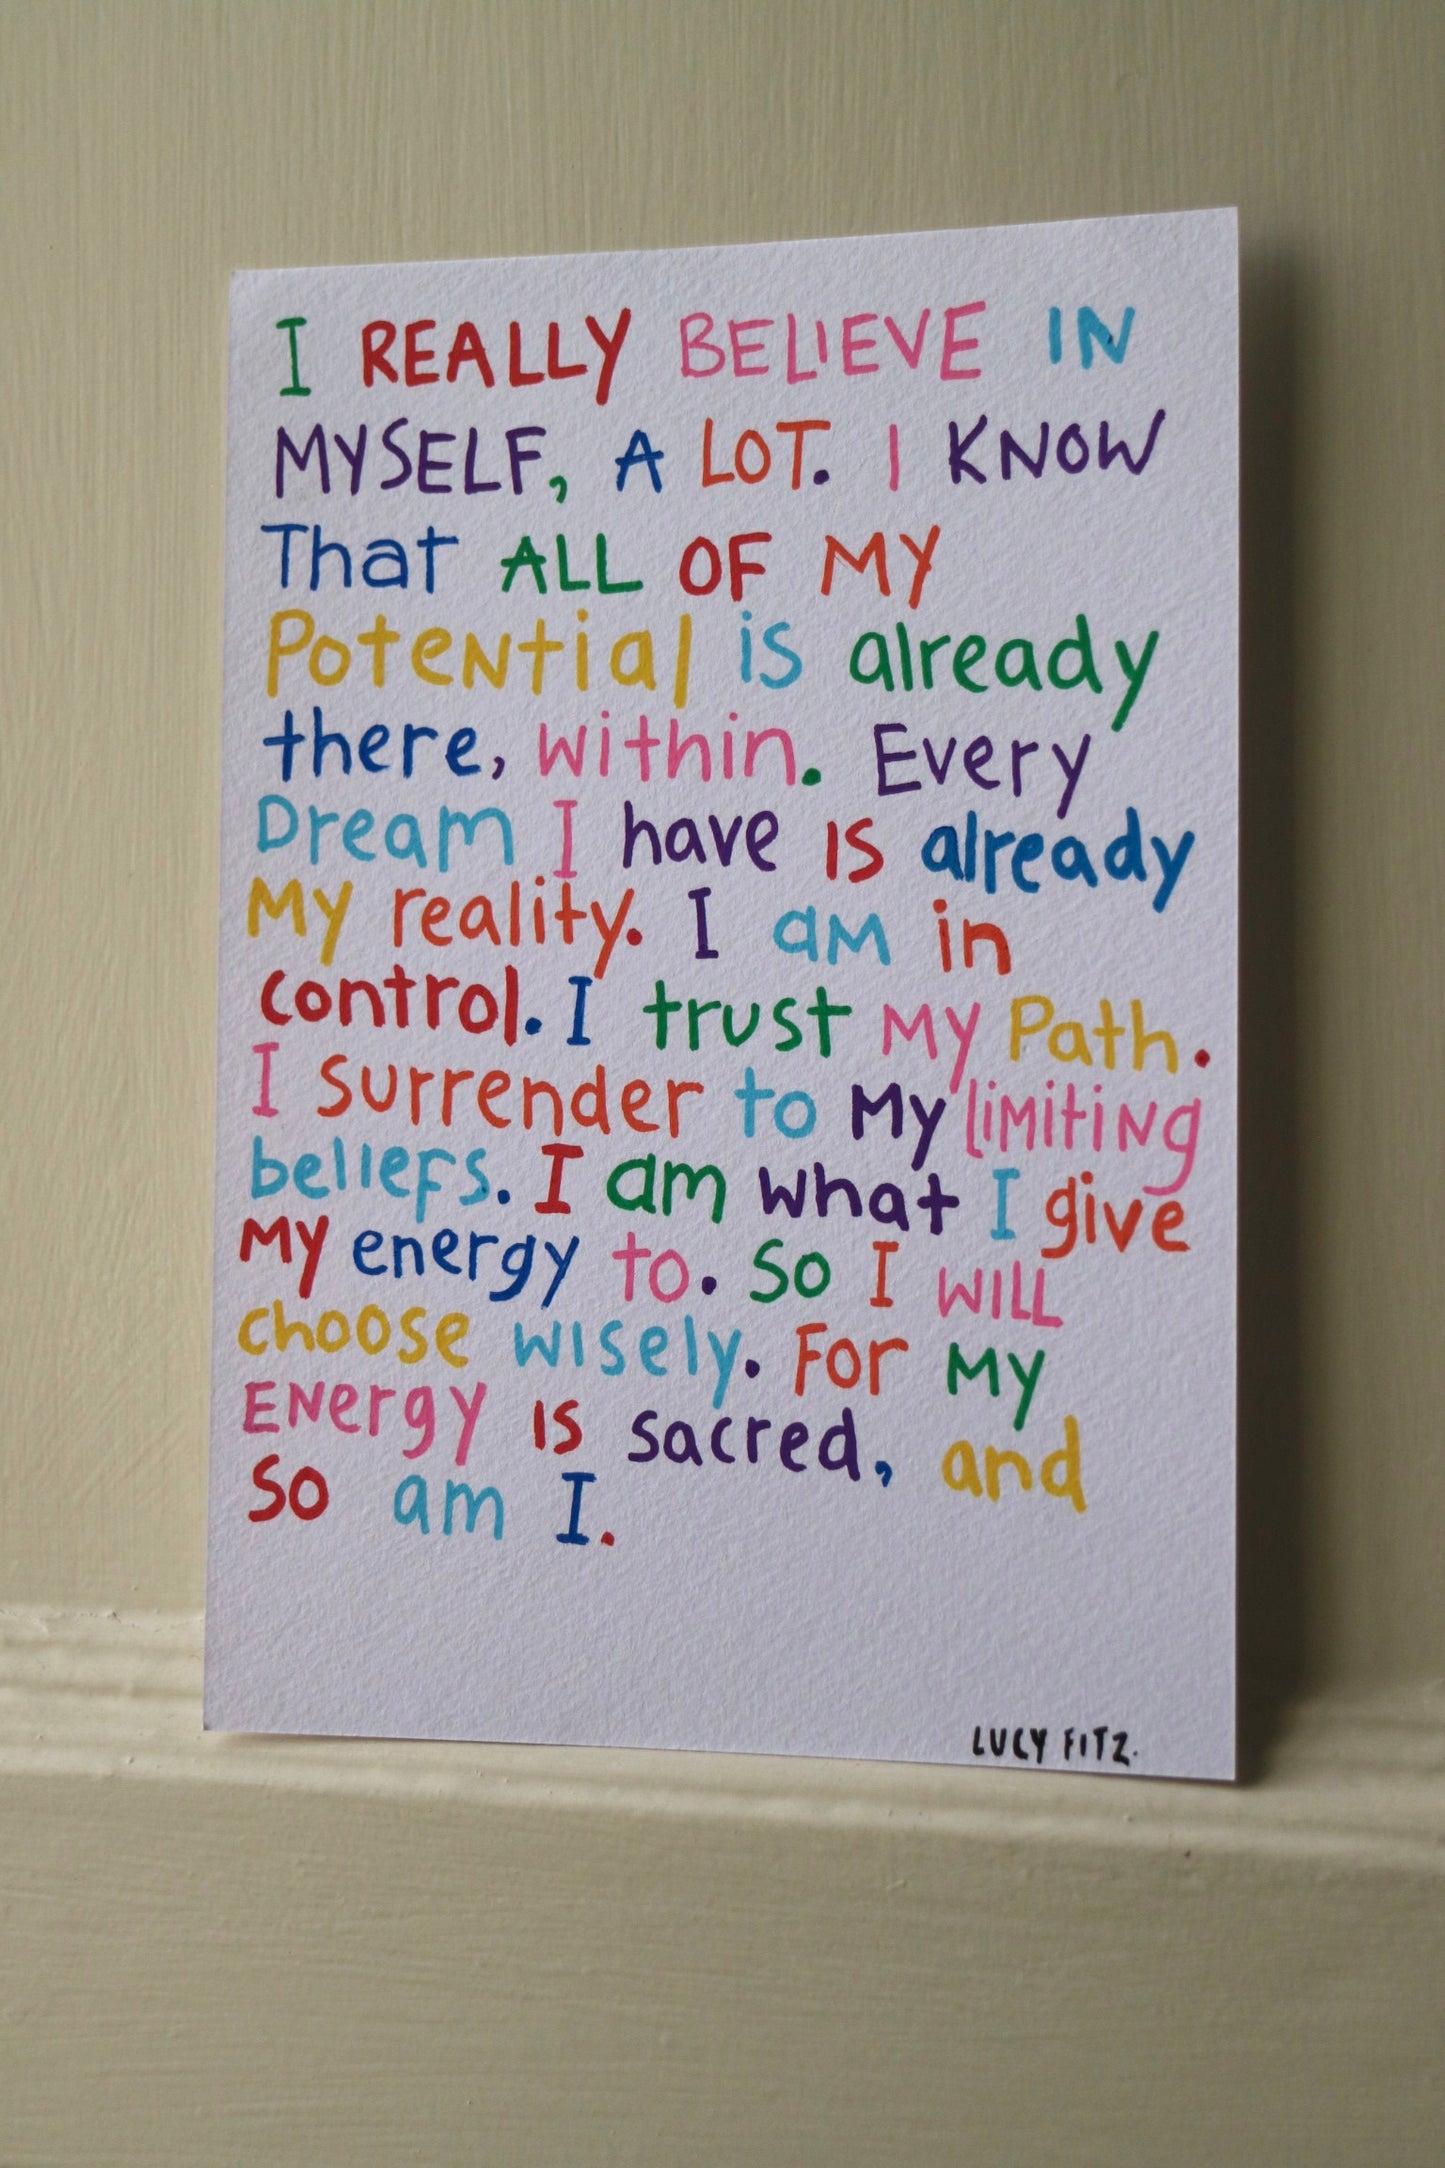 I REALLY BELIEVE IN
MYSELF, A LOT. I KNOW
That ALL OF MY
Potential is already
there, within. Every
Dream I have is already
My reality. I am in
control. I trust My Path.
I surrender to My limiting
beliefs. I am what I give
My energy to. So I will
choose wisely. For My
Energy is sacred, and
So am I.
LUCY FITZ.